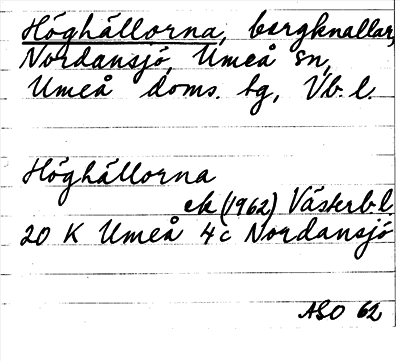 Höghällorna, bergknallar,
Nordansjö, Umeå sn,
Umeå doms. tg, Vb. l.
Höghällorna
ek (1962) Västerb. l
20 K Umeå 4c Nordansjö
ASO 62